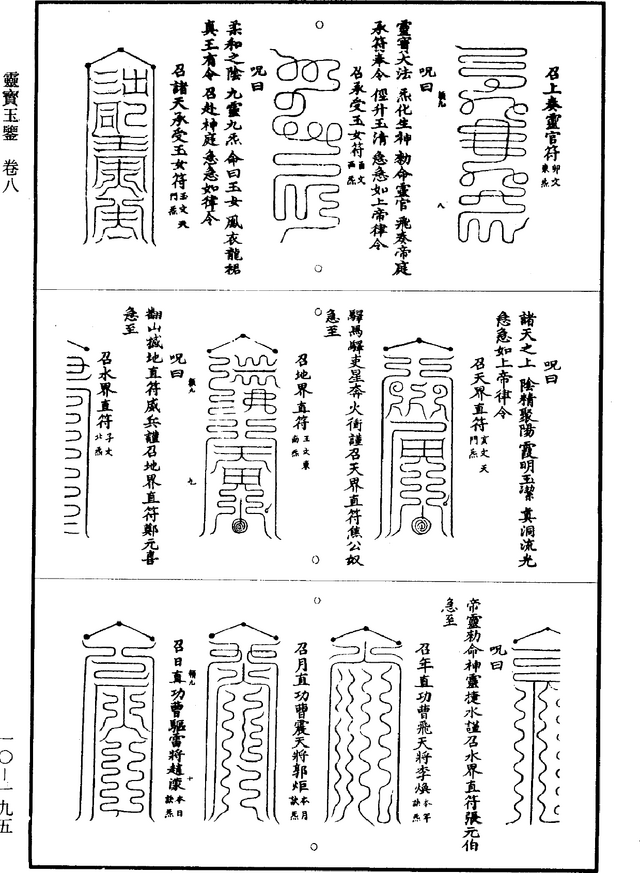 靈寶玉鑒 卷八
一〇—一九五
召上奏靈官符 卯文 東炁
咒曰
靈寶大法 炁化生神 勑命靈官 飛奏帝庭
承符奉令 徑升玉清 急急如上帝律令
召承受玉女符 酉文 西炁
咒曰
柔和之陰 九靈九炁 命曰玉女 風衣龍裙
真王有令 召赴神庭 急急如律令
召諸天承受玉女符 玉文 天門炁
咒曰
諸天之上 陰精聚陽 霞明玉潔 真洞流光
急急如上帝律令
召天界直符 亥文 天門炁
驛馬驛吏星奔火衝謹召天界直符焦公奴
急至
召地界直符
咒曰
翻山撼地直符威兵謹召地界直符鄭元喜
急至
召水界直符 子文 北炁
咒曰
帝靈勑命神靈捷水謹召水界直符張元伯
急至
召年直功曹飛天將李煥 本年訣炁
召月直功曹震天將郭炬 本月訣炁
召日直功曹驅雷將趙濛 本日訣炁
八
九
十